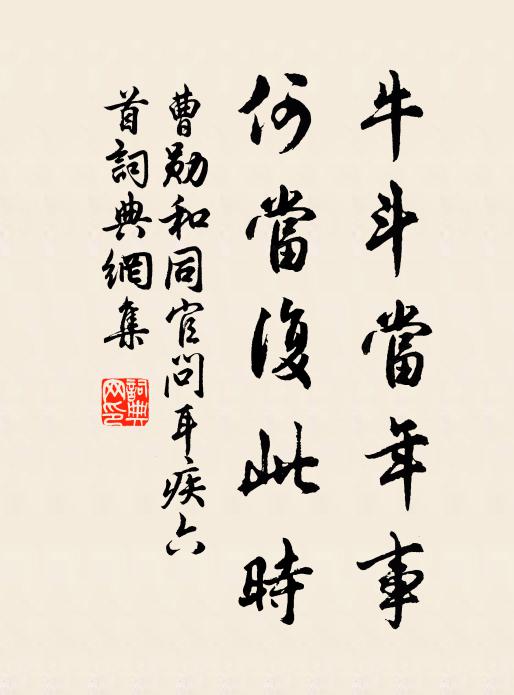 牛斗當年事
何當復此時
曹勛和同官問耳疾六
首詞典網集
詞典
网印